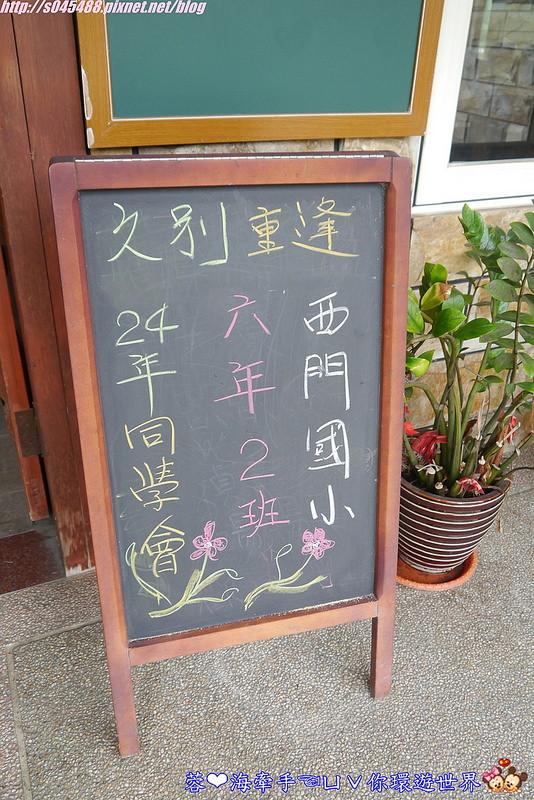 http://s045488.pixnet.net/blog
久別重逢
西門國小
六年2班
24年同學會
蓉❤海牽手☜ㄩㄩ你環遊世界